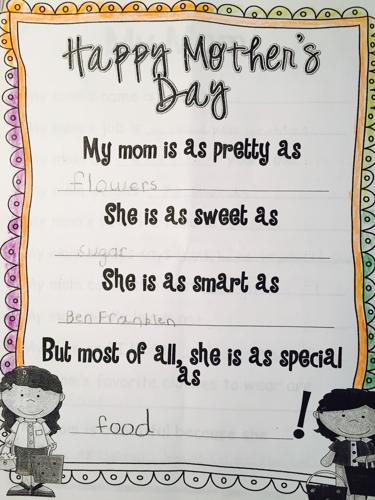 Happy Mother's
Day
My mom is as pretty as
flowers
She is as sweet as
sugar
She is as smart as
Ben Franklen
But most of all, she is as special
as
food !